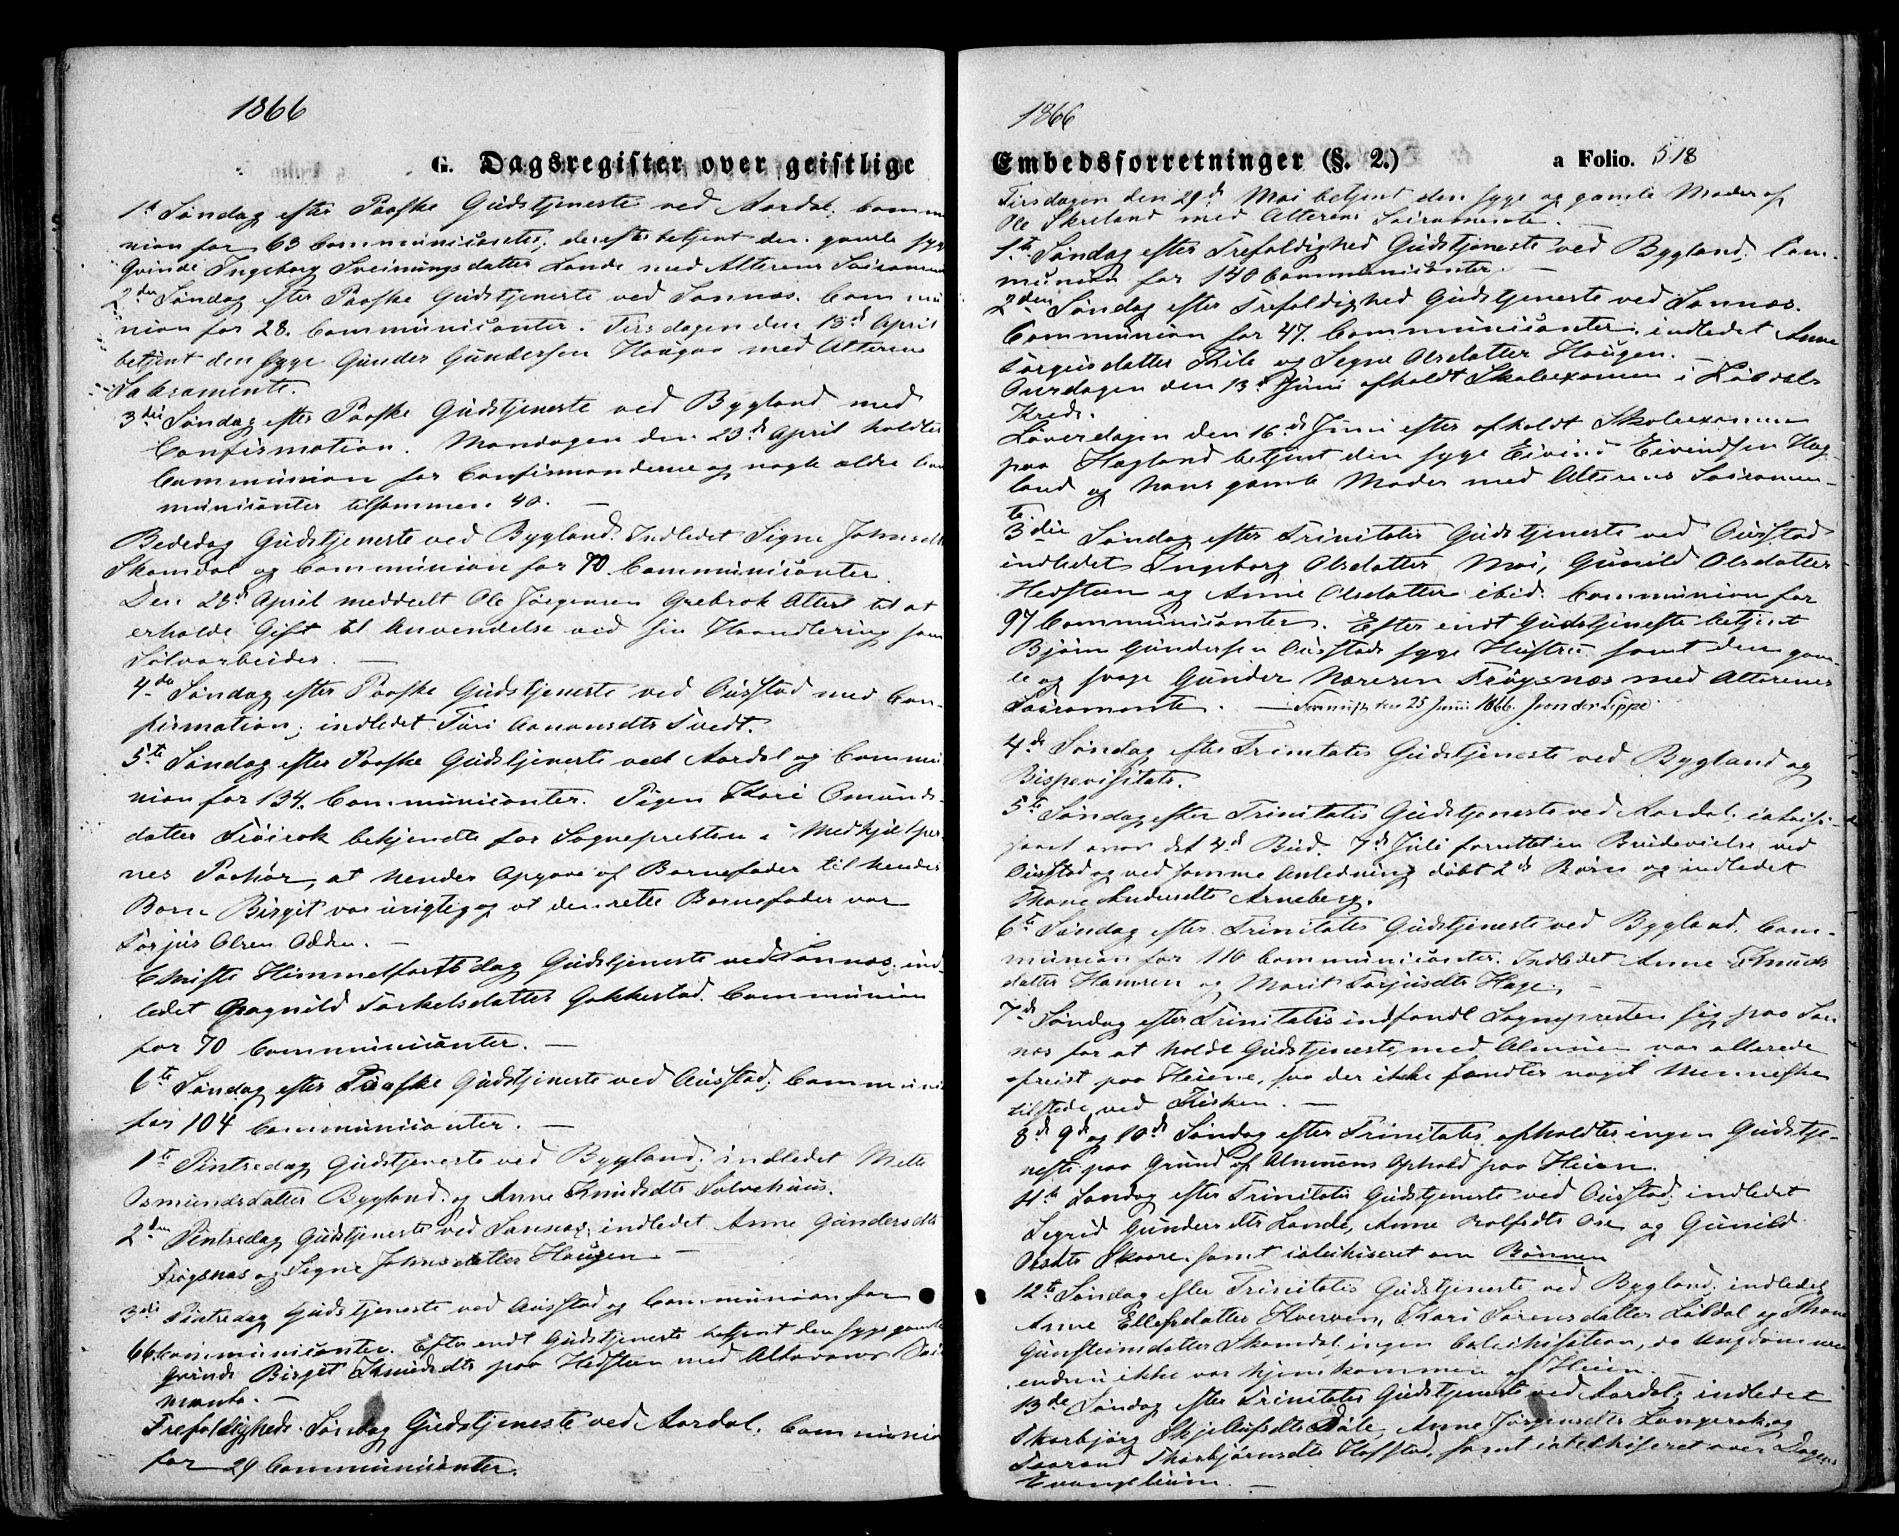 1866
G. Dagsregister over geistlige
1st Søndag efter Paaske Gudstjeneste ved Aardal. Commu
nion for 63 Communicanter, derefter betjent den gamle syge
Qvinde Ingeborg Sveinungsdatter Lande med Alterens Sacrament
2den Søndag efter Paaske Gudstjeneste ved Sannæs. Commu
nion for 28. Communicanter. Tirsdagen den April
betjent den syge Gunder Gundersen Haugaa med Alterens
Sakramente.
3die Søndag efter Paaske Gudstjeneste ved Bygland med
Confirmation. Mandagen den 23d April holdtes
Communion for Confirmanderne og nogle ældre Com
municanter tilsammen 40. —
Bededag Gudstjeneste ved Bygland. Indledet Signe Johnsdtr
Skomdal og Communion for 70 Communicanter.
Den 28d April meddeelt Ole Jørgensen Grebrok Attest til at
erholde Gift til Anvendelse ved sin Haandtering som
Sølvarbeider. —
4de Søndag efter Paaske Gudstjeneste ved Austad med Con-
firmation; indledet Turi Aanonsdtr Tvedt.
5te Søndag efter Paaske Gudstjeneste ved Aardal og Commu
nion for 134. Communicanter. Pigen Kari Omunds-
datter bekjendte for Sognepresten i Medhjelper-
nes Paahør, at hendes Opgave af Barnefader til hendes
Barn Birgit var urigtig og at den rette Barnefader var
Torjus Olsen . —
Christi Himmelfartsdag Gudstjeneste ved Sannæs; ind-
ledet Ragnild Torkelsdatter Gakkestad. Communion
for 70 Communicanter. —
6te Søndag efter Paaske Gudstjeneste ved Austad; Communi
for 104 Communicanter. —
1ste Pintsedag Gudstjeneste ved Bygland; indledet Mette
Osmundsdatter Bygland og Anne Knudsdtr Solvehuus.
2den Pintsedag Gudstjeneste ved Sannæs; indledet Anne Gundersdtr
Frøysnæs og Signe Johnsdatter Haugen —
3die Pintsedag Gudstjeneste ved Austad og Communion for
66 Communicanter. Efter endt Gudstjeneste betjent den syge gamle
Qvinde Birget Knudsdtr paa Hedsteen med Alterens Sac
mente. —
Trefoldigheds Søndag Gudstjeneste ved Aardal. Communio
for 29 Communicanter.
1866
Embedsforretninger (§. 2.) a Folio. 518
Tirsdagen den 29d Mai betjent den syge og gamle Moder af
Ole Skreland med Alterens Sacramente. —
1ste Søndag efter Trefoldighed Gudstjeneste ved Bygland; Com-
munion for 140 Communicanter. —
2den Søndag efter Trefoldighed Gudstjeneste ved Sannæs.
Communion for 47. Communicanter; indledet Anne
Torgusdatter Kile og Segne Olsdatter Haugen.
Onsdagen den 13d Juni afholdt Skoleexamen i Løbdals
Kreds.
Løverdagen den 16d Juni efter afholdt Skoleexamen
paa Hagland betjent den syge Eivind Eivindsen Hag-
land og hans gamle Moder med Alterens Sacramen-
te.
3die Søndag efter Trinitatis Gudstjeneste ved Austad
indledet Ingeborg Olsdatter Moi, Gunild Olsdatter
Hedsteen og Anne Olsdatter ibid. Communion for
97 Communicanter. Efter endt Gudstjeneste betjent
Bjørn Gundersen Austads syge Hustru samt den gam-
le og svage Gunder Frøysnæs med Alterens
Sacramente. — den 25 Juni 1866. J von der Lippe.
4de Søndag efter Trinitatis Gudstjeneste ved Bygland og
Bispevisitats.
5te Søndag efter Trinitatis Gudstjeneste ved Aardal. catechi-
seret over det 4de Bud. 7de Juli forrettet en Brudevielse ved
Austad og ved samme Anledning døbt 2de Børn og indledet
Thone Andersdtr Arneberg.
6te Søndag efter Trinitatis Gudstjeneste ved Bygland. Com-
munion for 110 Communicanter. Indledet Anne Knuds
datter Hamren og Marit Torjusdtr Hage. —
7de Søndag efter Trinitatis indfandt Sognepresten sig paa San
næs for at holde Gudstjeneste, med Almuen var allerede
afreist paa Heiene, saa der ikke fandtes noget Menneske
tilstede ved Kirken. —
8de 9de og 10de Søndag efter Trinitatis afholdtes ingen Gudstje-
neste paa Grund af Almuens Ophold paa Heien.
11te Søndag efter Trinitatis Gudstjeneste ved Austad; indledet
Segrid Gundersdtr Lande, Anne Rolfsdtr Ose og Gunild
Olsdtr Skaare. samt catechiseret om Bønnen
12te Søndag efter Trinitatis Gudstjeneste ved Bygland; indledet
Anne Ellefsdatter Hverven, Kari Sørensdatter Løbdal og Thone
Gunsteinsdatter Skomdal, ingen Catechisation, da Ungdommen
endnu ikke var hjemkommen af Heien.
13de Søndag efter Trinitatis Gudstjeneste ved Aardal; indledet
Thorbjørg , Anne Jørgensdtr Langerak og
Taarand Thorbjørnsdtr Hofstad, samt catechiseret over Dagens
Evangelium. —